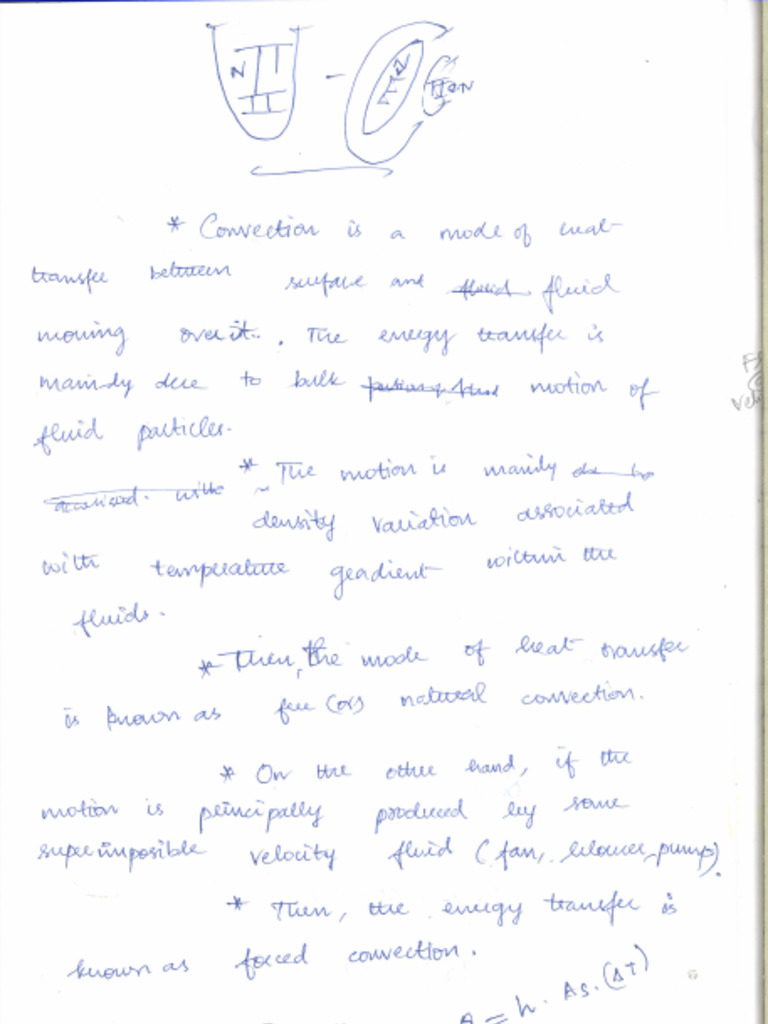 UNIT II - CONVECTION
* Convection is a mode of heat
transfer between surface and fluid fluid
moving over it. The energy transfer is
mainly due to bulk motion of
fluid particles.
* The motion is mainly due to
associated with
density variation associated
with temperature gradient within the
fluids.
* Then, the mode of heat transfer
is known as free (or) natural convection.
* On the other hand, if the
motion is principally produced by some
superimposible velocity fluid (fan, blower, pump).
* Then, the energy transfer is
known as forced convection.
= h. As. (ΔT)